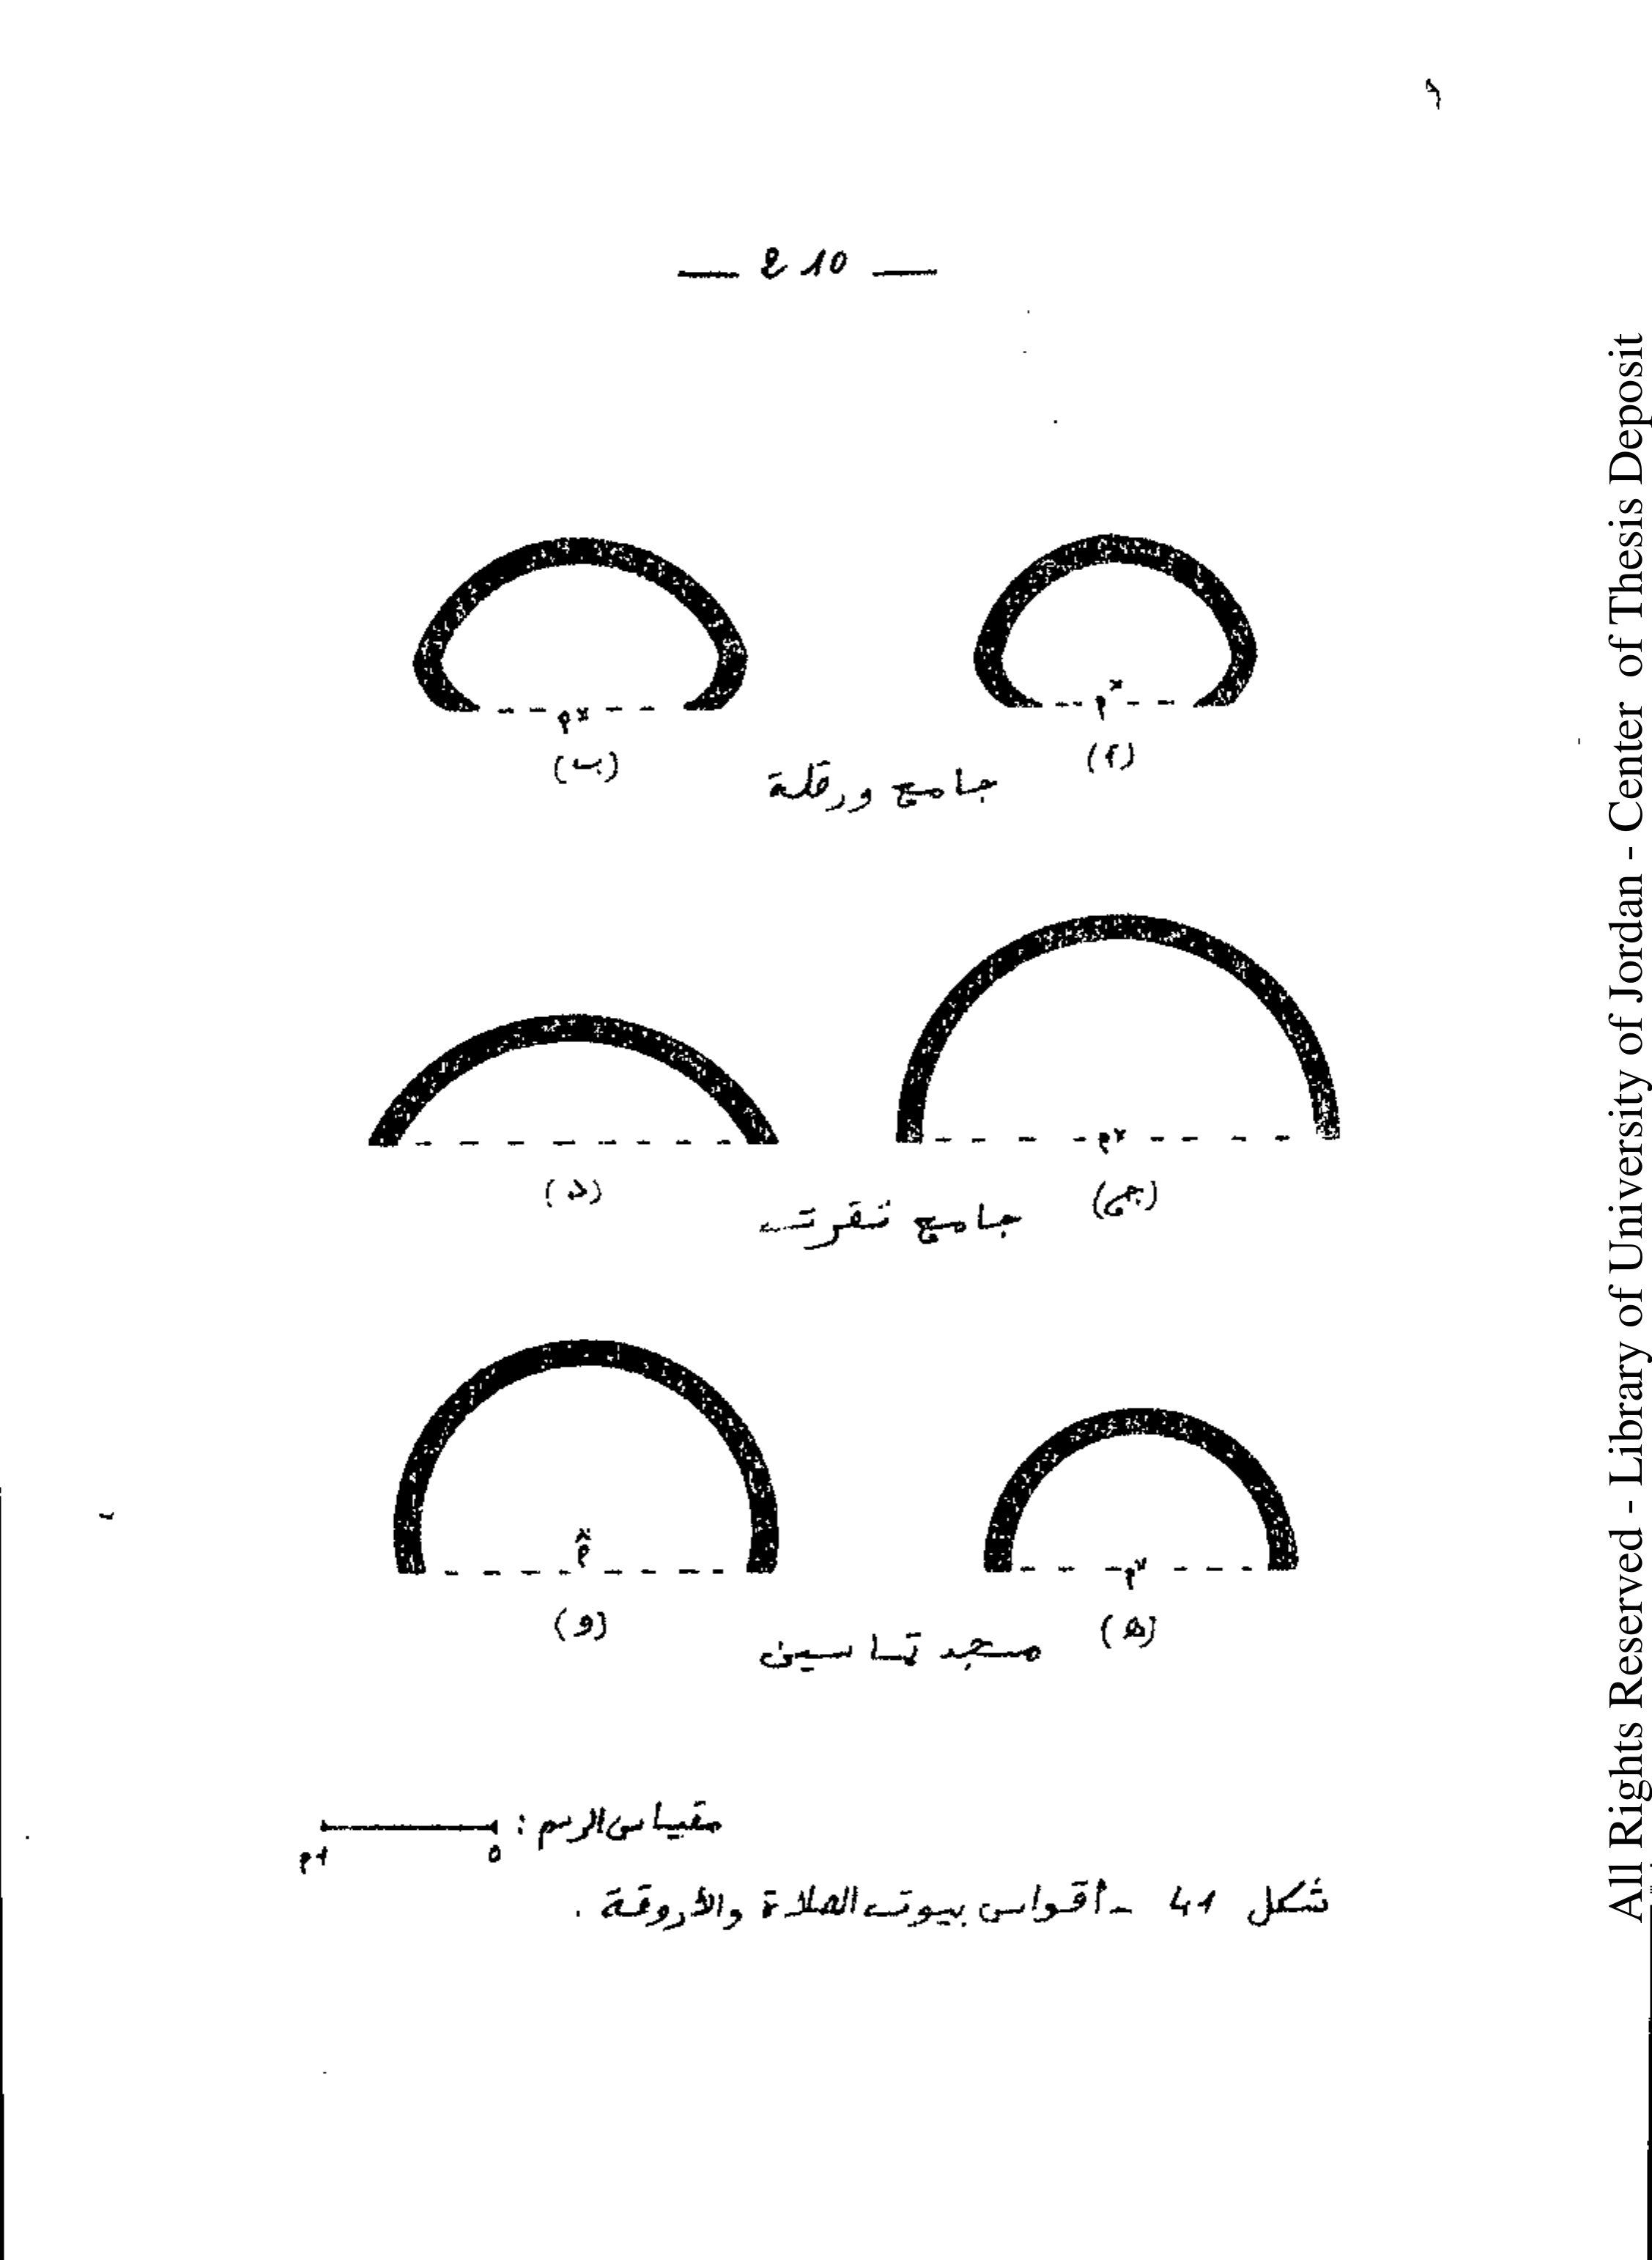 — 210 —
م×
م×
(أ)
(ب)
جامع ورقلة
م×
(جـ)
(د)
جامع تقرت
م×
م×
(هـ)
(و)
مسجد تماسين
مقياس الرسم :
0
1م
شكل 41 - أقواس بيوت الصلاة والأروقة .
All Rights Reserved - Library of University of Jordan - Center of Thesis Deposit